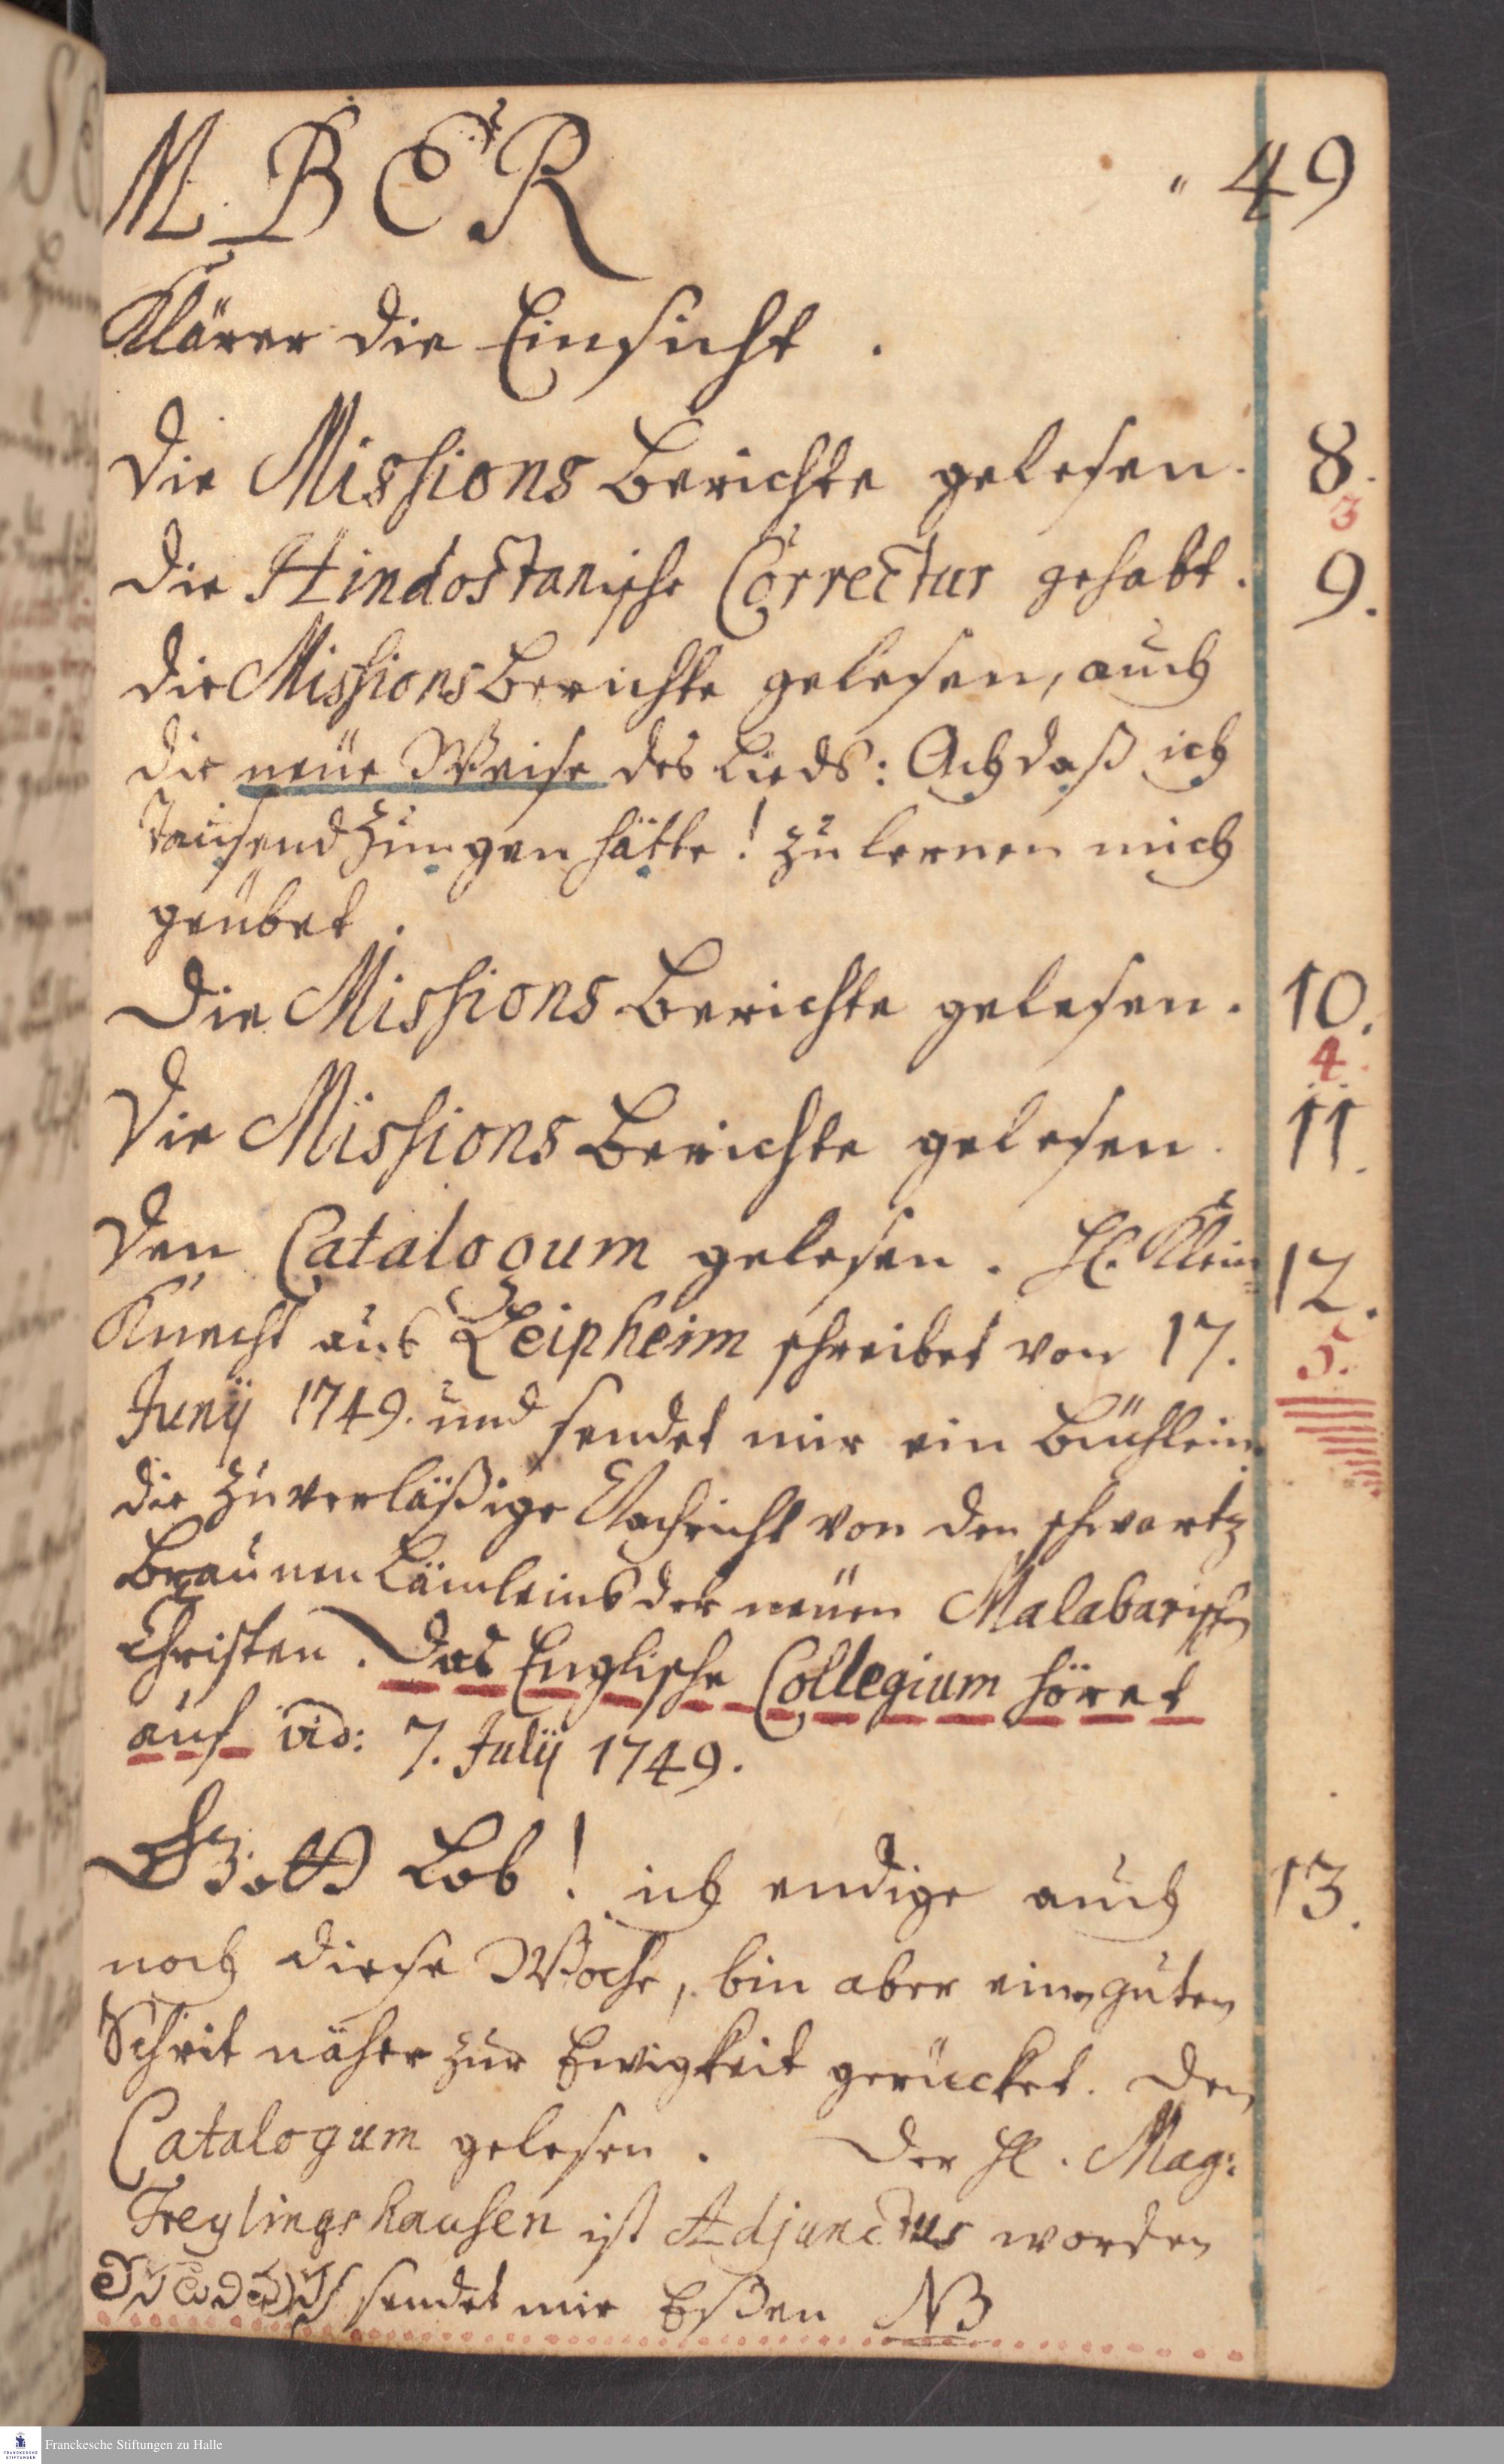 MBER " 49
Klärer die Einsicht.
Die Missions Berichte gelesen. 8.
3
Die Hindostanische Correctur gehabt. 9.
die Missions Berichte gelesen, auch
die neüe Weise des Lieds: Ach daß ich
tausend Zungen hätte! zu lernen mich
geübet.
Die Missions Berichte gelesen. 10.
4.
Die Missions Berichte gelesen. 11.
Den Catalogum gelesen. H. Klein= 12.
Knecht aus Leipheim schreibet von 17. 5.
Junij 1749. und sendet mir ein Büchlein.
die zuverläßige Nachricht von den schwartz
Braunen Lämleins der neüen Malabarischen
Christen. Das Englische Collegium höret
auf vid: 7. Julij 1749.
Gott Lob! ich endige auch 13.
noch diese Woche, bin aber einen guten
Schrit näher zur Ewigkeit gerücket. Den
Catalogum gelesen. Der H. Mag:
Freylingshausen ist Adjunctus worden
sendet mir Eßen NB
Franckesche Stiftungen zu Halle